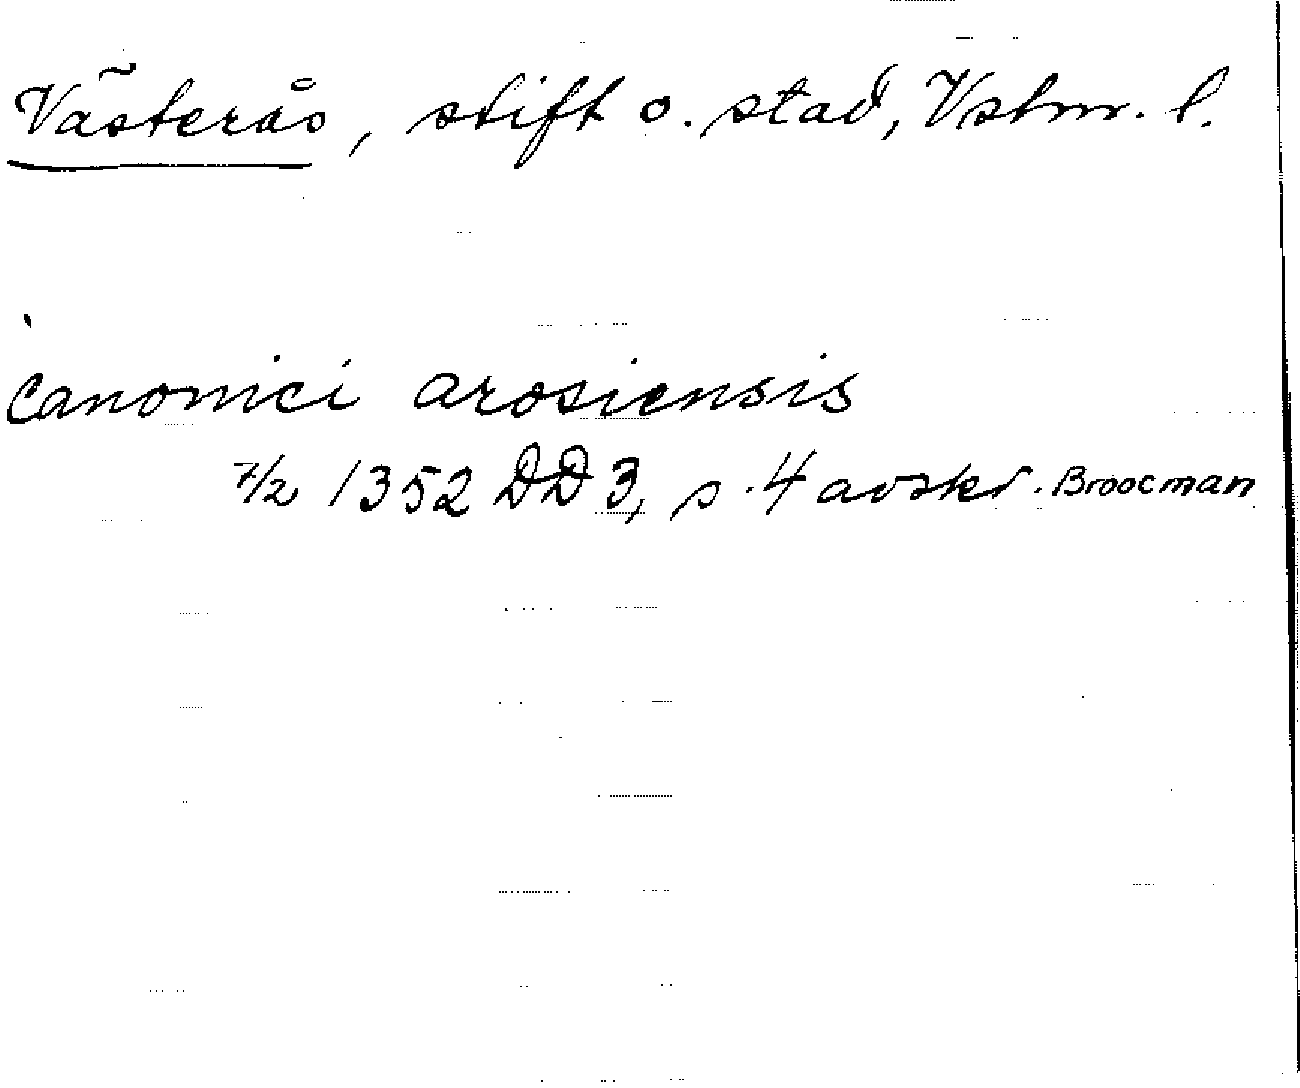 Västerås, stift o. stad, Vstm. l.
Canonici arosiensis
7/2 1352 DD 3, s. 4 avskr. Broocman